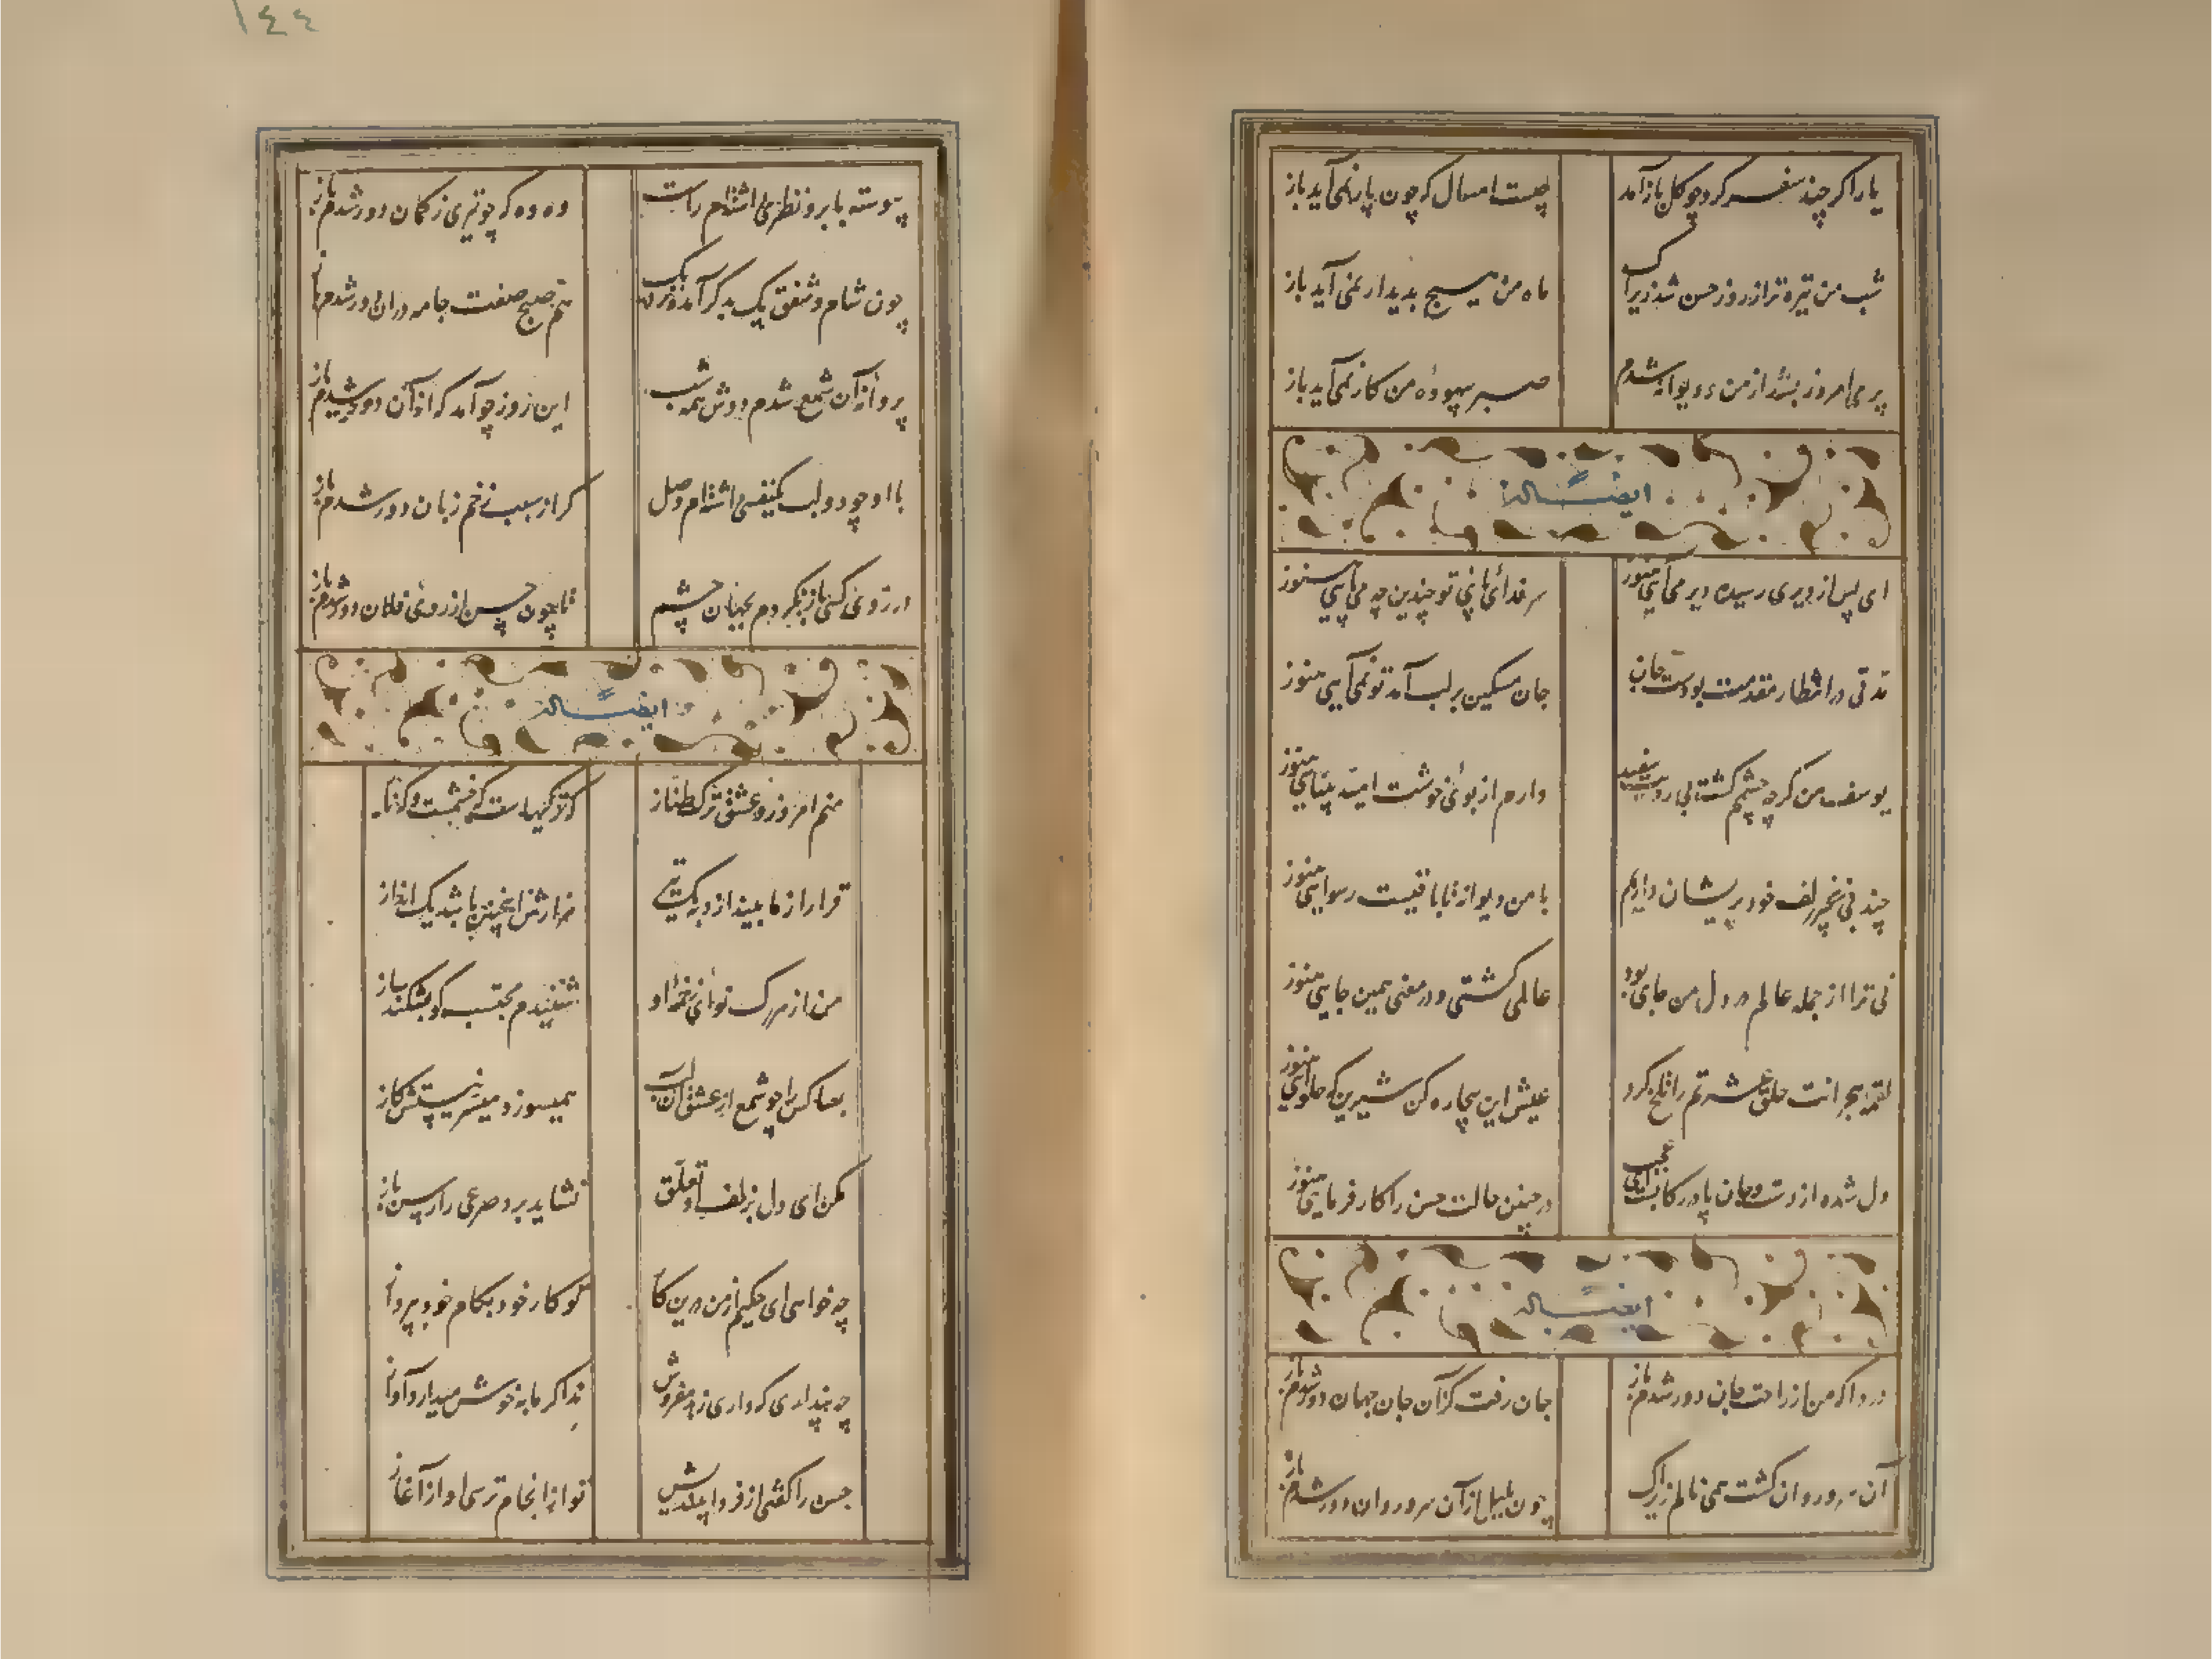 یار اگر چند سفر کرد چو گل باز آمد
چیست امسال که چون پار نمی آید باز
شب من تیره تر از روز حسن شد زیراک
ماه من هیچ بدیدار نمی آید باز
پرمی امروز بشد از من و دیوانه شدم
صبر بیهوده من کار نمی آید باز
ایضاً له
ای پس از دیری رسیده دیر می آیی هنوز
سر فدای پای تو چندین چه می پایی هنوز
مدتی در انتظار مقدمت بودست جان
جان مسکین بر لب آمد تو نمی آیی هنوز
یوسف من گرچه چشمم گشت بی رویت سفید
دارم از بوی خوشت امید بینایی هنوز
چند بی زنجیر زلف خود پریشان داریم
با من دیوانه تا باقیست رسوایی هنوز
نی ترا از جمله عالم در دل من جای بود
عالمی گشتی و در معنی همین جایی هنوز
لقمه هجرانت حلق عشرتم را تلخ کرد
عیش این بیچاره کن شیرین که حلوایی هنوز
دل شده از دست و جان پا در رکابست ای عجب
در چنین حالت حسن را کار فرمایی هنوز
ایضاً له
دردا که من از راحت جان دور شدم باز
جان رفت کز آن جان جهان دور شدم باز
آن سرو روان گشت همی نالم زیراک
چون بلبل از آن سرو روان دور شدم باز
١٤٤
پیوسته بابرو نظری داشتم راست
وه وه که چو تیری ز کمان دور شدم باز
چون شام و شفق یک بدگر آمده نزدیک
هم صبح صفت جامه دران دور شدم باز
پروانه آن شمع شدم دوش همه شب
این روز چو آمد که از آن دور شدم باز
با او چو دو لب یکنفسی داشتم وصل
کز از سبب زخم زبان دور شدم باز
از روی کسی باز نکردم بجهان چشم
تا چون حسن از روی فلان دور شدم باز
ایضاً له
منم امروز و عشق ترک طناز
که ترکیها سقت که خشمست و که ناز
قرار از ما ببیند از به یک تیر
هزارش زا بچنین باشد یک انداز
من از هر رگ نوای نغمه او
شنیدم محتسب کو بشکند ساز
بسا کس را چو شمع از عشق آن لب
همیسوزد و میسر نیستش گاز
مکن ای دل بزلف او تعلق
نشاید برد صرعی را رسن باز
چه خواهی ای حکیم از من درین کار
تو کار خود بکام خود بپرداز
چه پنداری که داری زهد مفروش
ندا کر مابه خوش میدارد آواز
حسن را گفتی از فردا بیندیش
تو از انجام ترسی او از آغاز